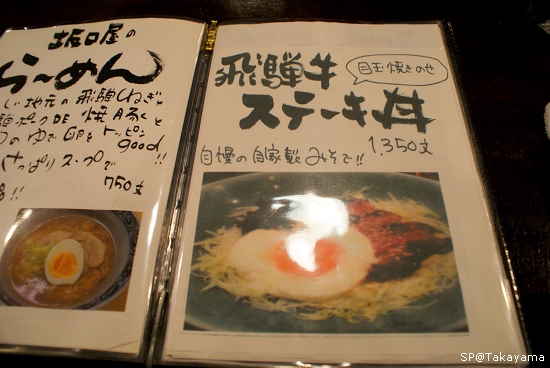 坂口屋の
らーめん
地元の飛騨ねぎ
焼豚
のゆで卵をトッピン
good
さっぱりスープで
!!
750文
飛騨牛
目玉焼きのせ
ステーキ丼
1,350文
自慢の自家製みそで!!
SP@Takayama